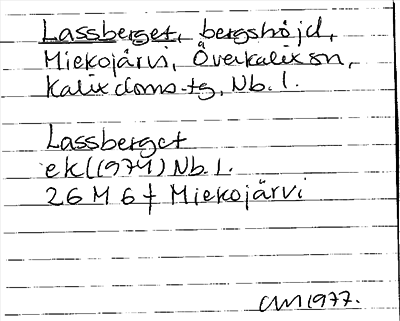 Lassberget, bergshöjd,
Miekojärvi, Överkalix sn,
Kalix doms.tg, Nb. l.
Lassberget
ek (1974) Nb. l.
26 M 6 f Miekojärvi
1977.